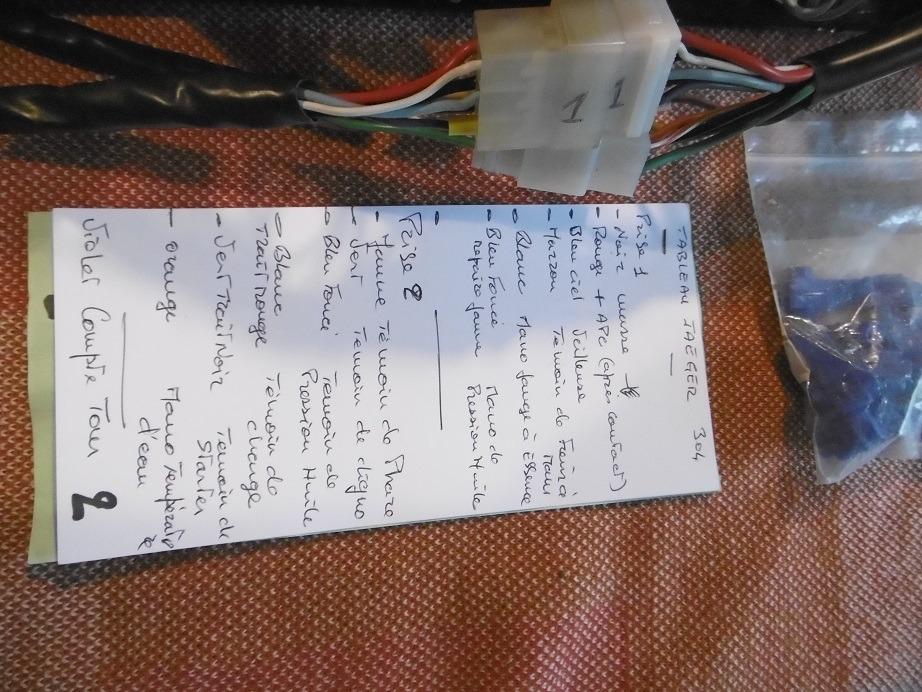 TABLEAU JAEGER 304
Prise 1
- Noir masse
- Rouge + APC (après contact)
- Bleu ciel Veilleuse
- Marron Témoin de Frein à Main
- Blanc Mano Jauge à Essence
- Bleu Foncé Mano de
repaire jaune Pression Huile
Prise 2
- Jaune Témoin de Phare
- Vert Témoin de cligno
- Bleu Foncé Témoin de
Pression Huile
- Blanc Témoin de
Trait Rouge charge
- Vert Trait Noir Temoin de
Starter
- orange Mano Température
d'eau
Violet Compte Tour
2
1 1